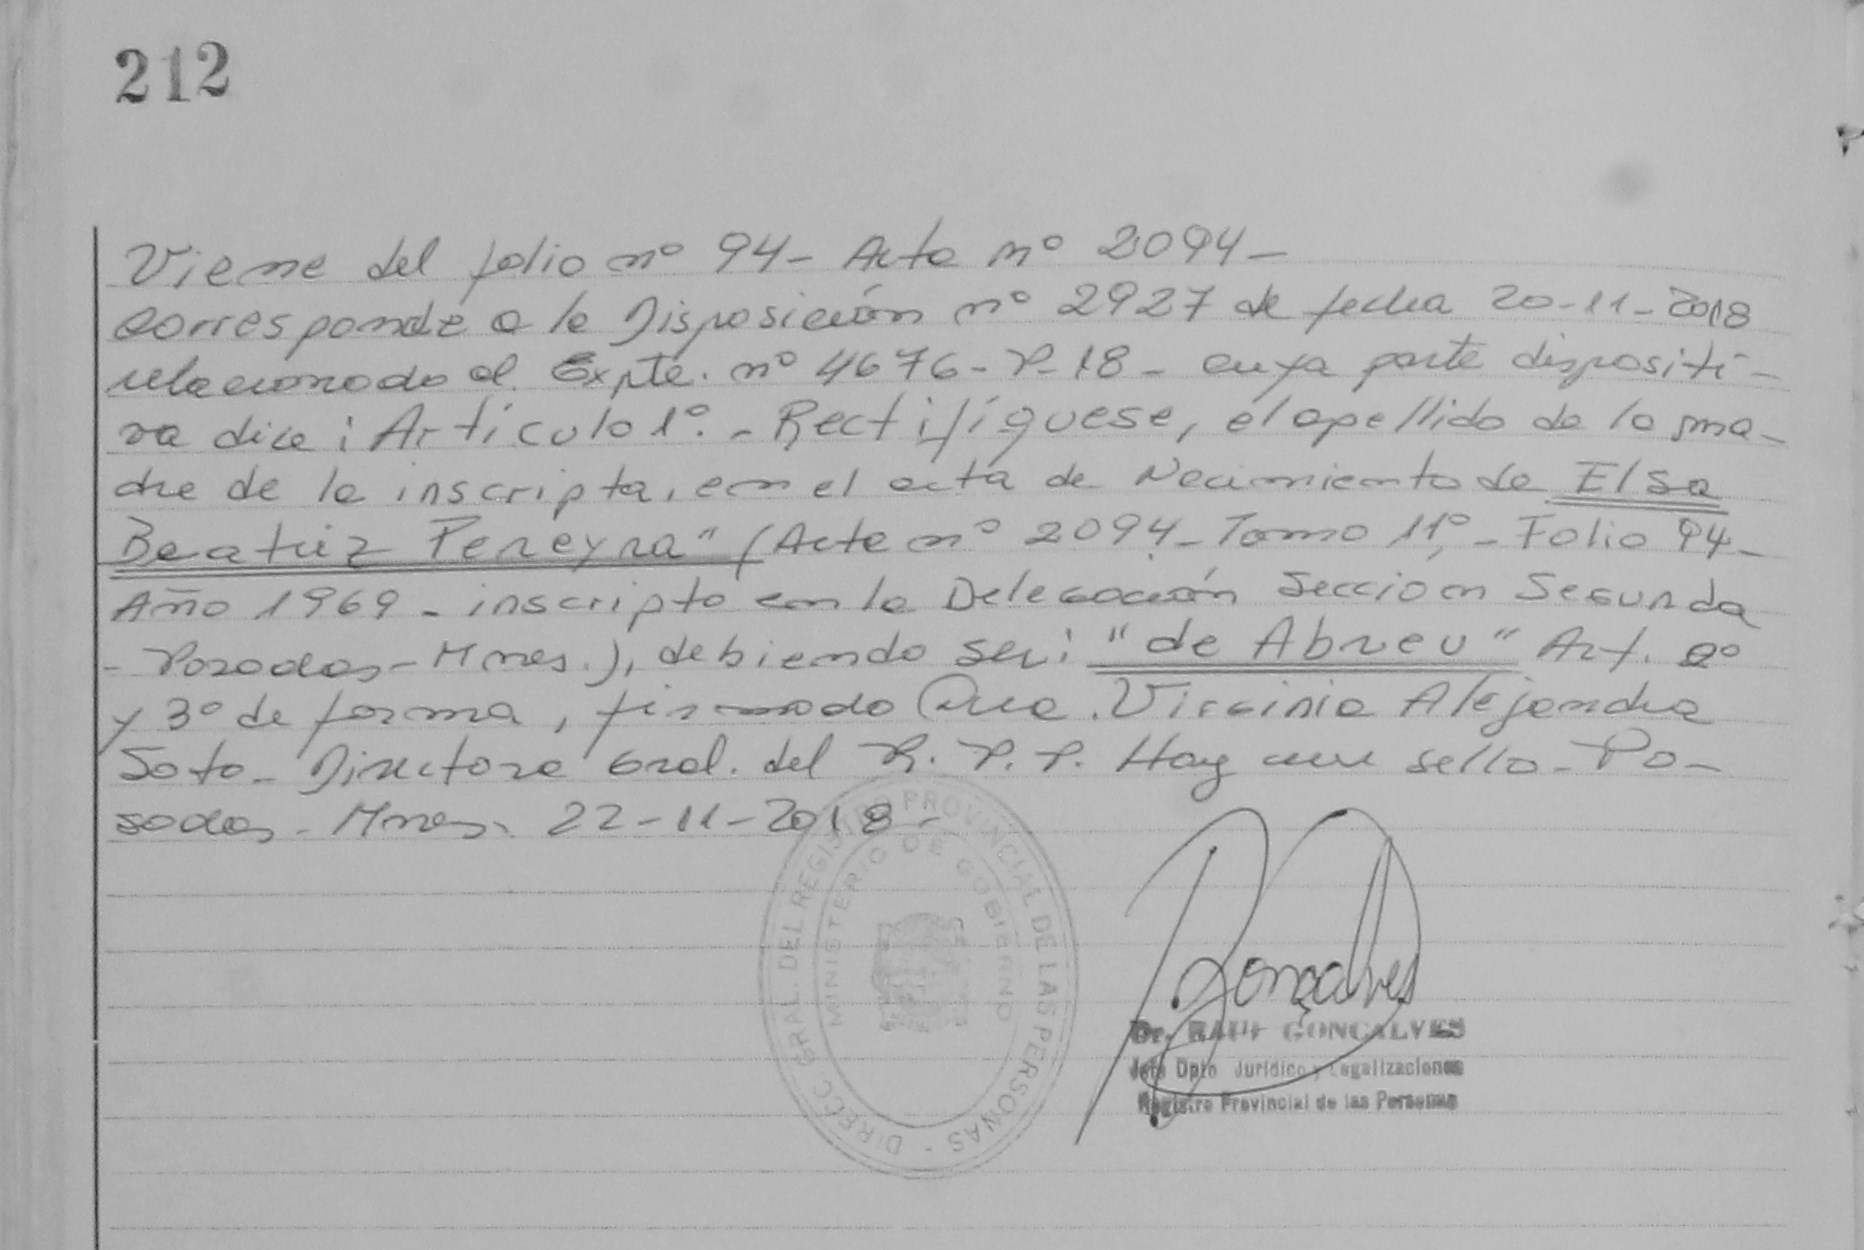 212
Viene del folio nº 94- Acta nº 2094-
Corresponde a la Disposición nº 2927 de fecha 20-11-2018
relacionado al Expte. nº 4676-P-18- cuya parte dispositi-
va dice: Artículo 1º.- Rectifíquese, el apellido de la ma-
dre de la inscripta, en el acta de Nacimiento de Elsa
Beatriz Pereyra" (Acta nº 2094- Tomo 11º,- Folio 94-
Año 1969- inscripto en la Delegación Seccion Segunda
- Posadas- Mnes.), debiendo ser: "de Abreu" Art. 2º
y 3º de forma, firmado Dra. Virginia Alejandra
Soto- Directora Gral. del R. P. P. Hay un sello- Po-
sadas- Mnes. 22-11-2018-
DIRECC. GRAL. DEL REGISTRO PROVINCIAL DE LAS PERSONAS -
MINISTERIO DE GOBIERNO
RGonçalves
Dr. RAUL GONCALVES
Jefe Dpto Jurídico y Legalizaciones
Registro Provincial de las Personas